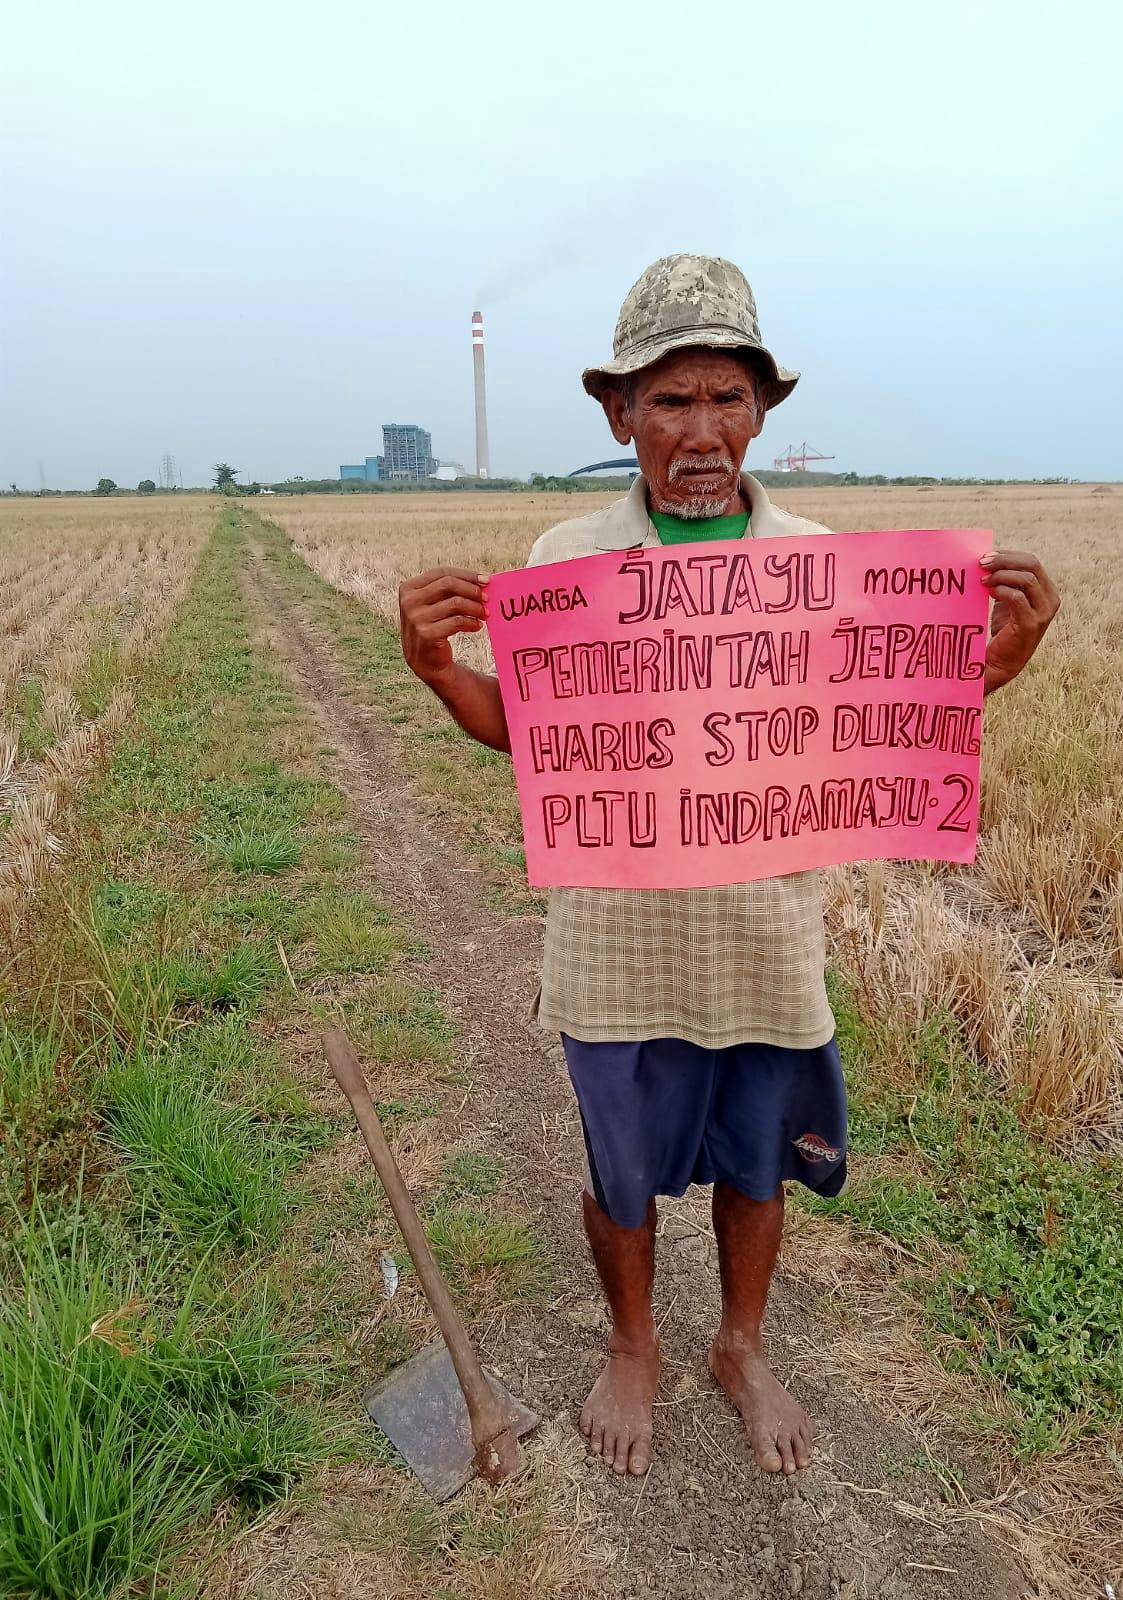 WARGA JATAYU MOHON
PEMERINTAH JEPANG
HARUS STOP DUKUNG
PLTU INDRAMAYU-2
LAKERS